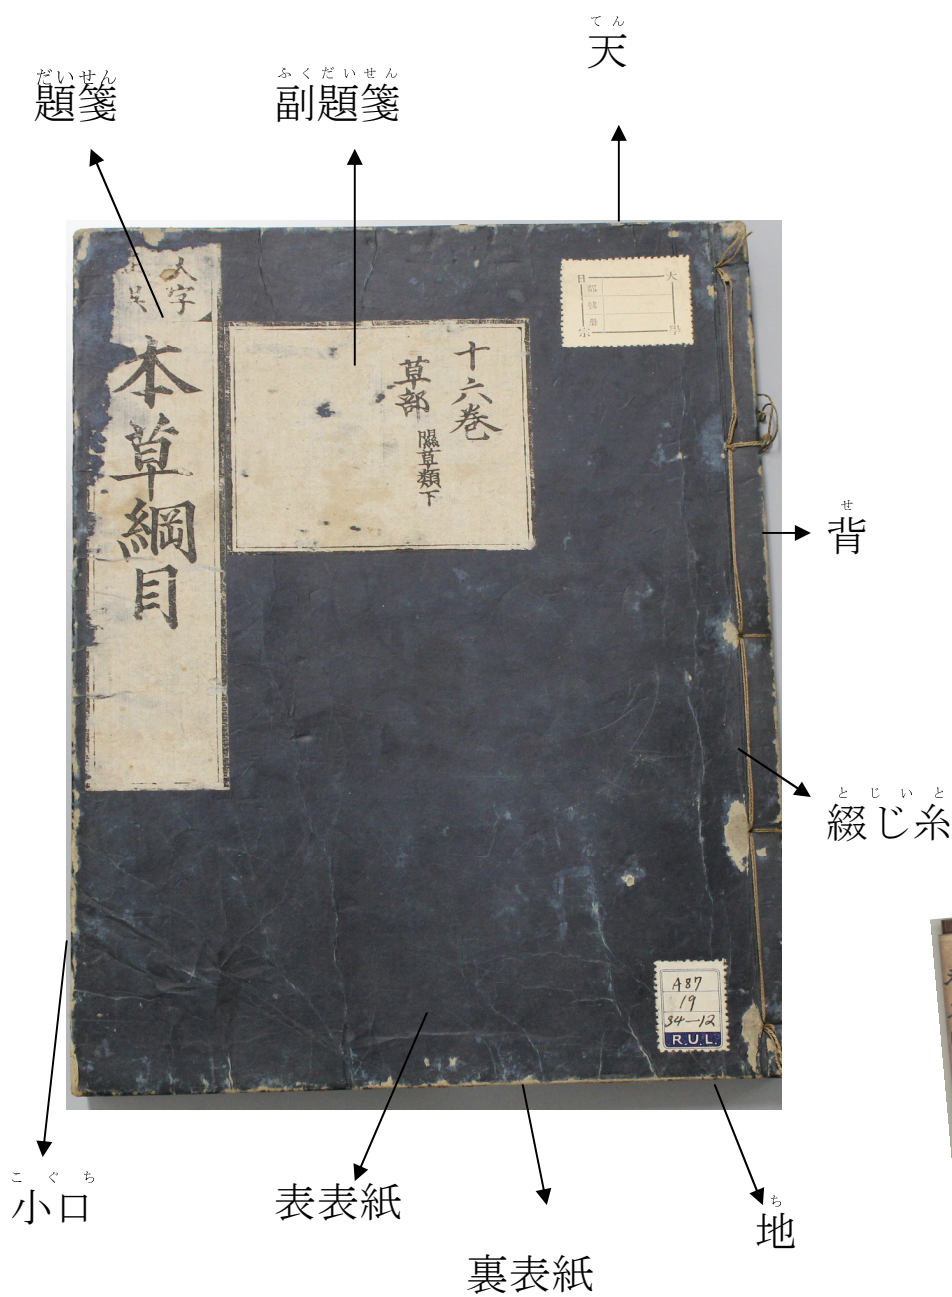 てん
天
だいせん
題箋
ふくだいせん
副題箋
大字
本草綱目
十六巻
草部
隰草類下
大
日
部
號
册
學
宗
せ
背
とじいと
綴じ糸
A87
19
34-12
R.U.L.
こぐち
小口
表表紙
裏表紙
ち
地